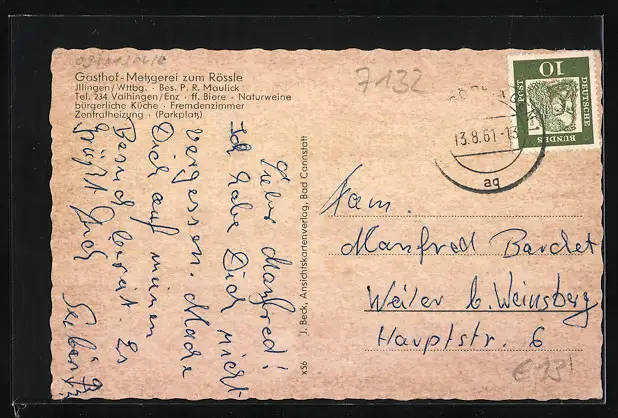 Gasthof-Metzgerei zum Rössle
Illingen/Wttbg. · Bes. P. R. Maulick
Tel. 234 Vaihingen/Enz · ff. Biere · Naturweine
bürgerliche Küche · Fremdenzimmer
Zentralheizung · (Parkplatz)
Lieber Manfred!
Ich habe Dich nicht
vergessen. Mache
Dich auf meinen
Besuch bereit. Es
grüßt Dich
J. Beck, Ansichtskartenverlag, Bad Cannstatt
x56
7132
13.8.61-13
ag
10
DEUTSCHE
BUNDES
POST
Fam.
Manfred Bardet
Weiler b. Weinsberg
Hauptstr. 6